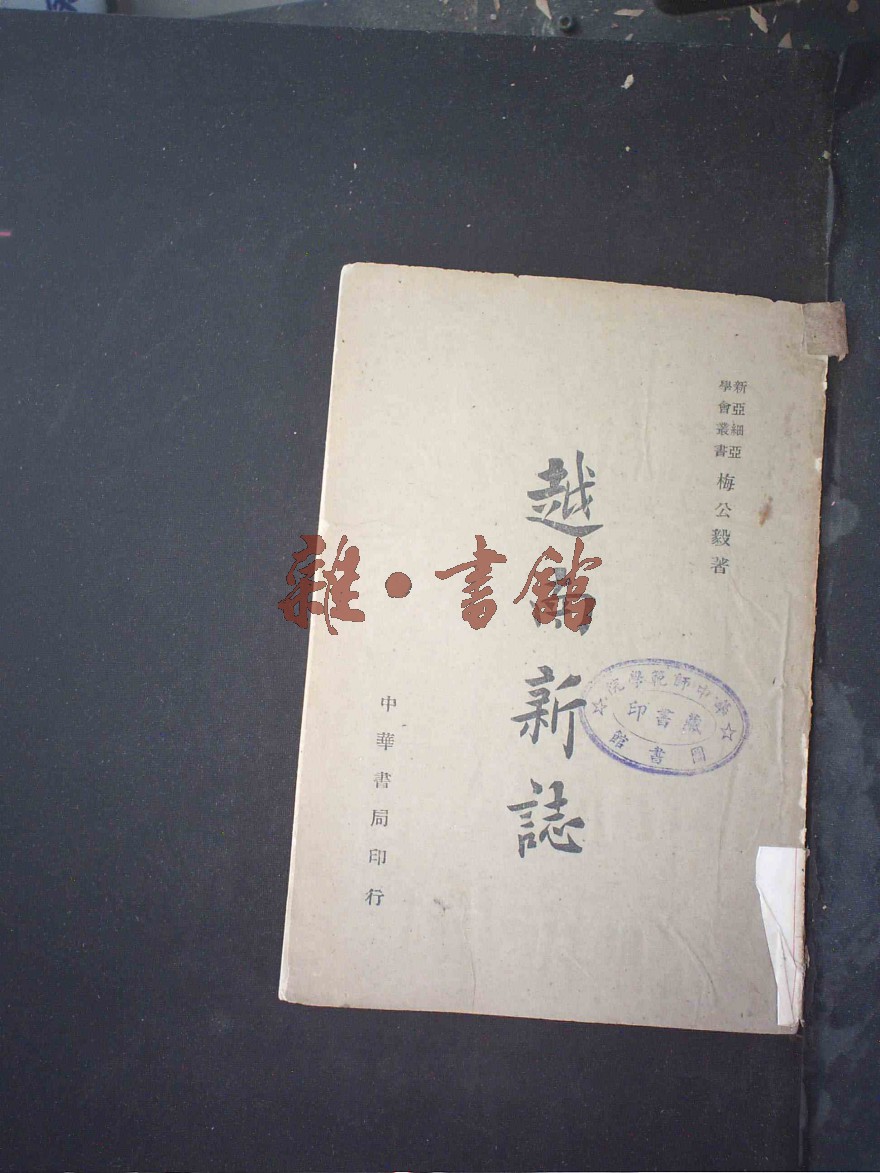 新亞細亞
學會叢書
梅公毅著
越南新誌
中華書局印行
華中師範學院
圖書館
藏書印
雜·書館